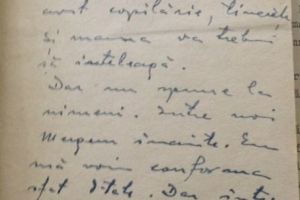 avut copilărie, tinerețe
și mama va trebui
să înțeleagă.
Dar nu spune la
nimeni. Între noi
mergem înainte. Eu
mă voi conforma
Dar